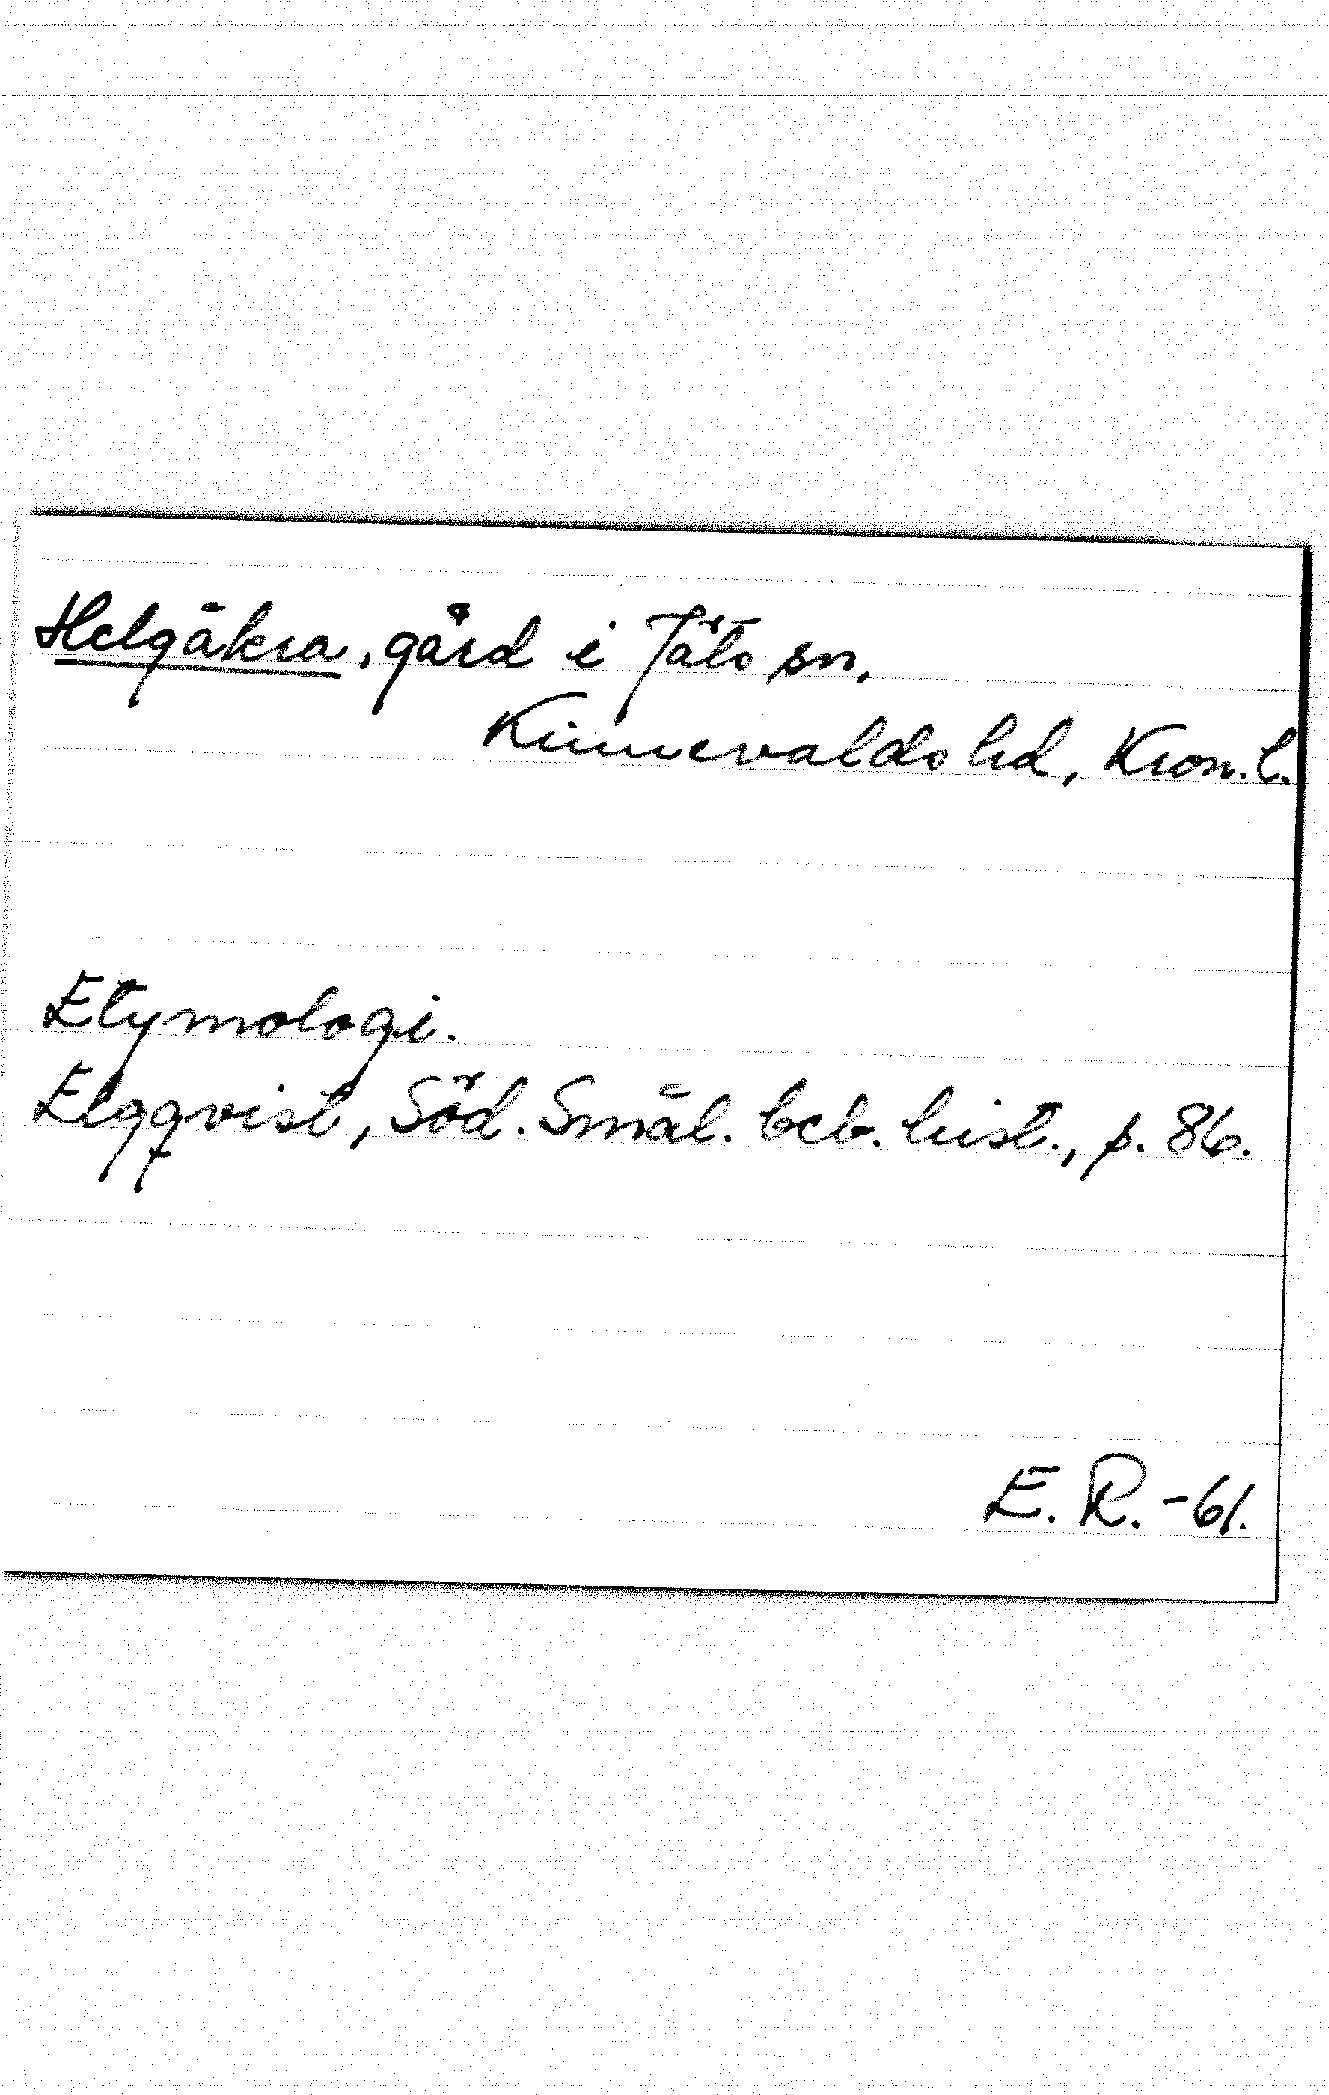 Helgåkra, gård i Jäts sn,
Kinnevalds hd, Kron. l.
Etymologi.
Elgqvist, Söd. Smål. beb. hist., p. 86.
E. R. -61.